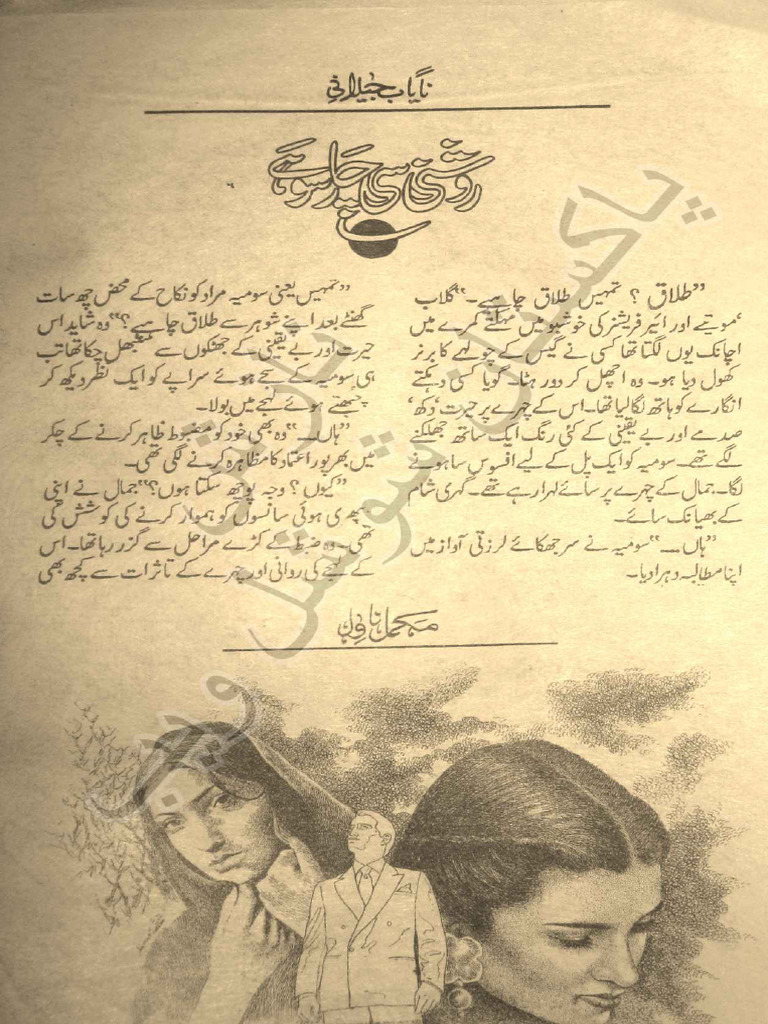 نایاب جیلانی
روشنی سی چار سو ہے
”طلاق ؟ تمہیں طلاق چاہیے۔“ گلاب
’موتیے اور ائیر فریشنر کی خوشبو میں مہکتے کمرے میں
اچانک یوں لگتا تھا کسی نے گیس کے چولہے کا برنر
کھول دیا ہو۔ وہ اچھل کر دور ہٹا۔ گویا کسی دہکتے
انگارے کو ہاتھ لگا لیا تھا۔ اس کے چہرے پر حیرت ’دکھ‘
صدمے اور بے یقینی کے کئی رنگ ایک ساتھ جھلکنے
لگے تھے۔ سومیہ کو ایک پل کے لیے افسوس سا ہونے
لگا۔ جمال کے چہرے پر سائے لہرا رہے تھے۔ گہری شام
کے بھیانک سائے۔
”ہاں۔۔۔۔“ سومیہ نے سر جھکائے لرزتی آواز میں
اپنا مطالبہ دہرا دیا۔
”تمہیں یعنی سومیہ مراد کو نکاح کے محض چھ سات
گھنٹے بعد اپنے شوہر سے طلاق چاہیے؟“ وہ شاید اس
حیرت اور بے یقینی کے جھٹکوں سے سنبھل چکا تھا تب
ہی سومیہ کے سجے ہوئے سراپے کو ایک نظر دیکھ کر
چبھتے ہوئے لہجے میں بولا۔
”ہاں۔۔۔۔“ وہ بھی خود کو مضبوط ظاہر کرنے کے چکر
میں بھرپور اعتماد کا مظاہرہ کرنے لگی تھی۔
”کیوں؟ وجہ پوچھ سکتا ہوں؟“ جمال نے اپنی
بپھری ہوئی سانسوں کو ہموار کرنے کی کوشش کی
تھی۔ وہ ضبط کے کڑے مراحل سے گزر رہا تھا۔ اس
کے لہجے کی روانی اور چہرے کے تاثرات سے کچھ بھی
مکمل ناول
پاکستان سوشل ویب